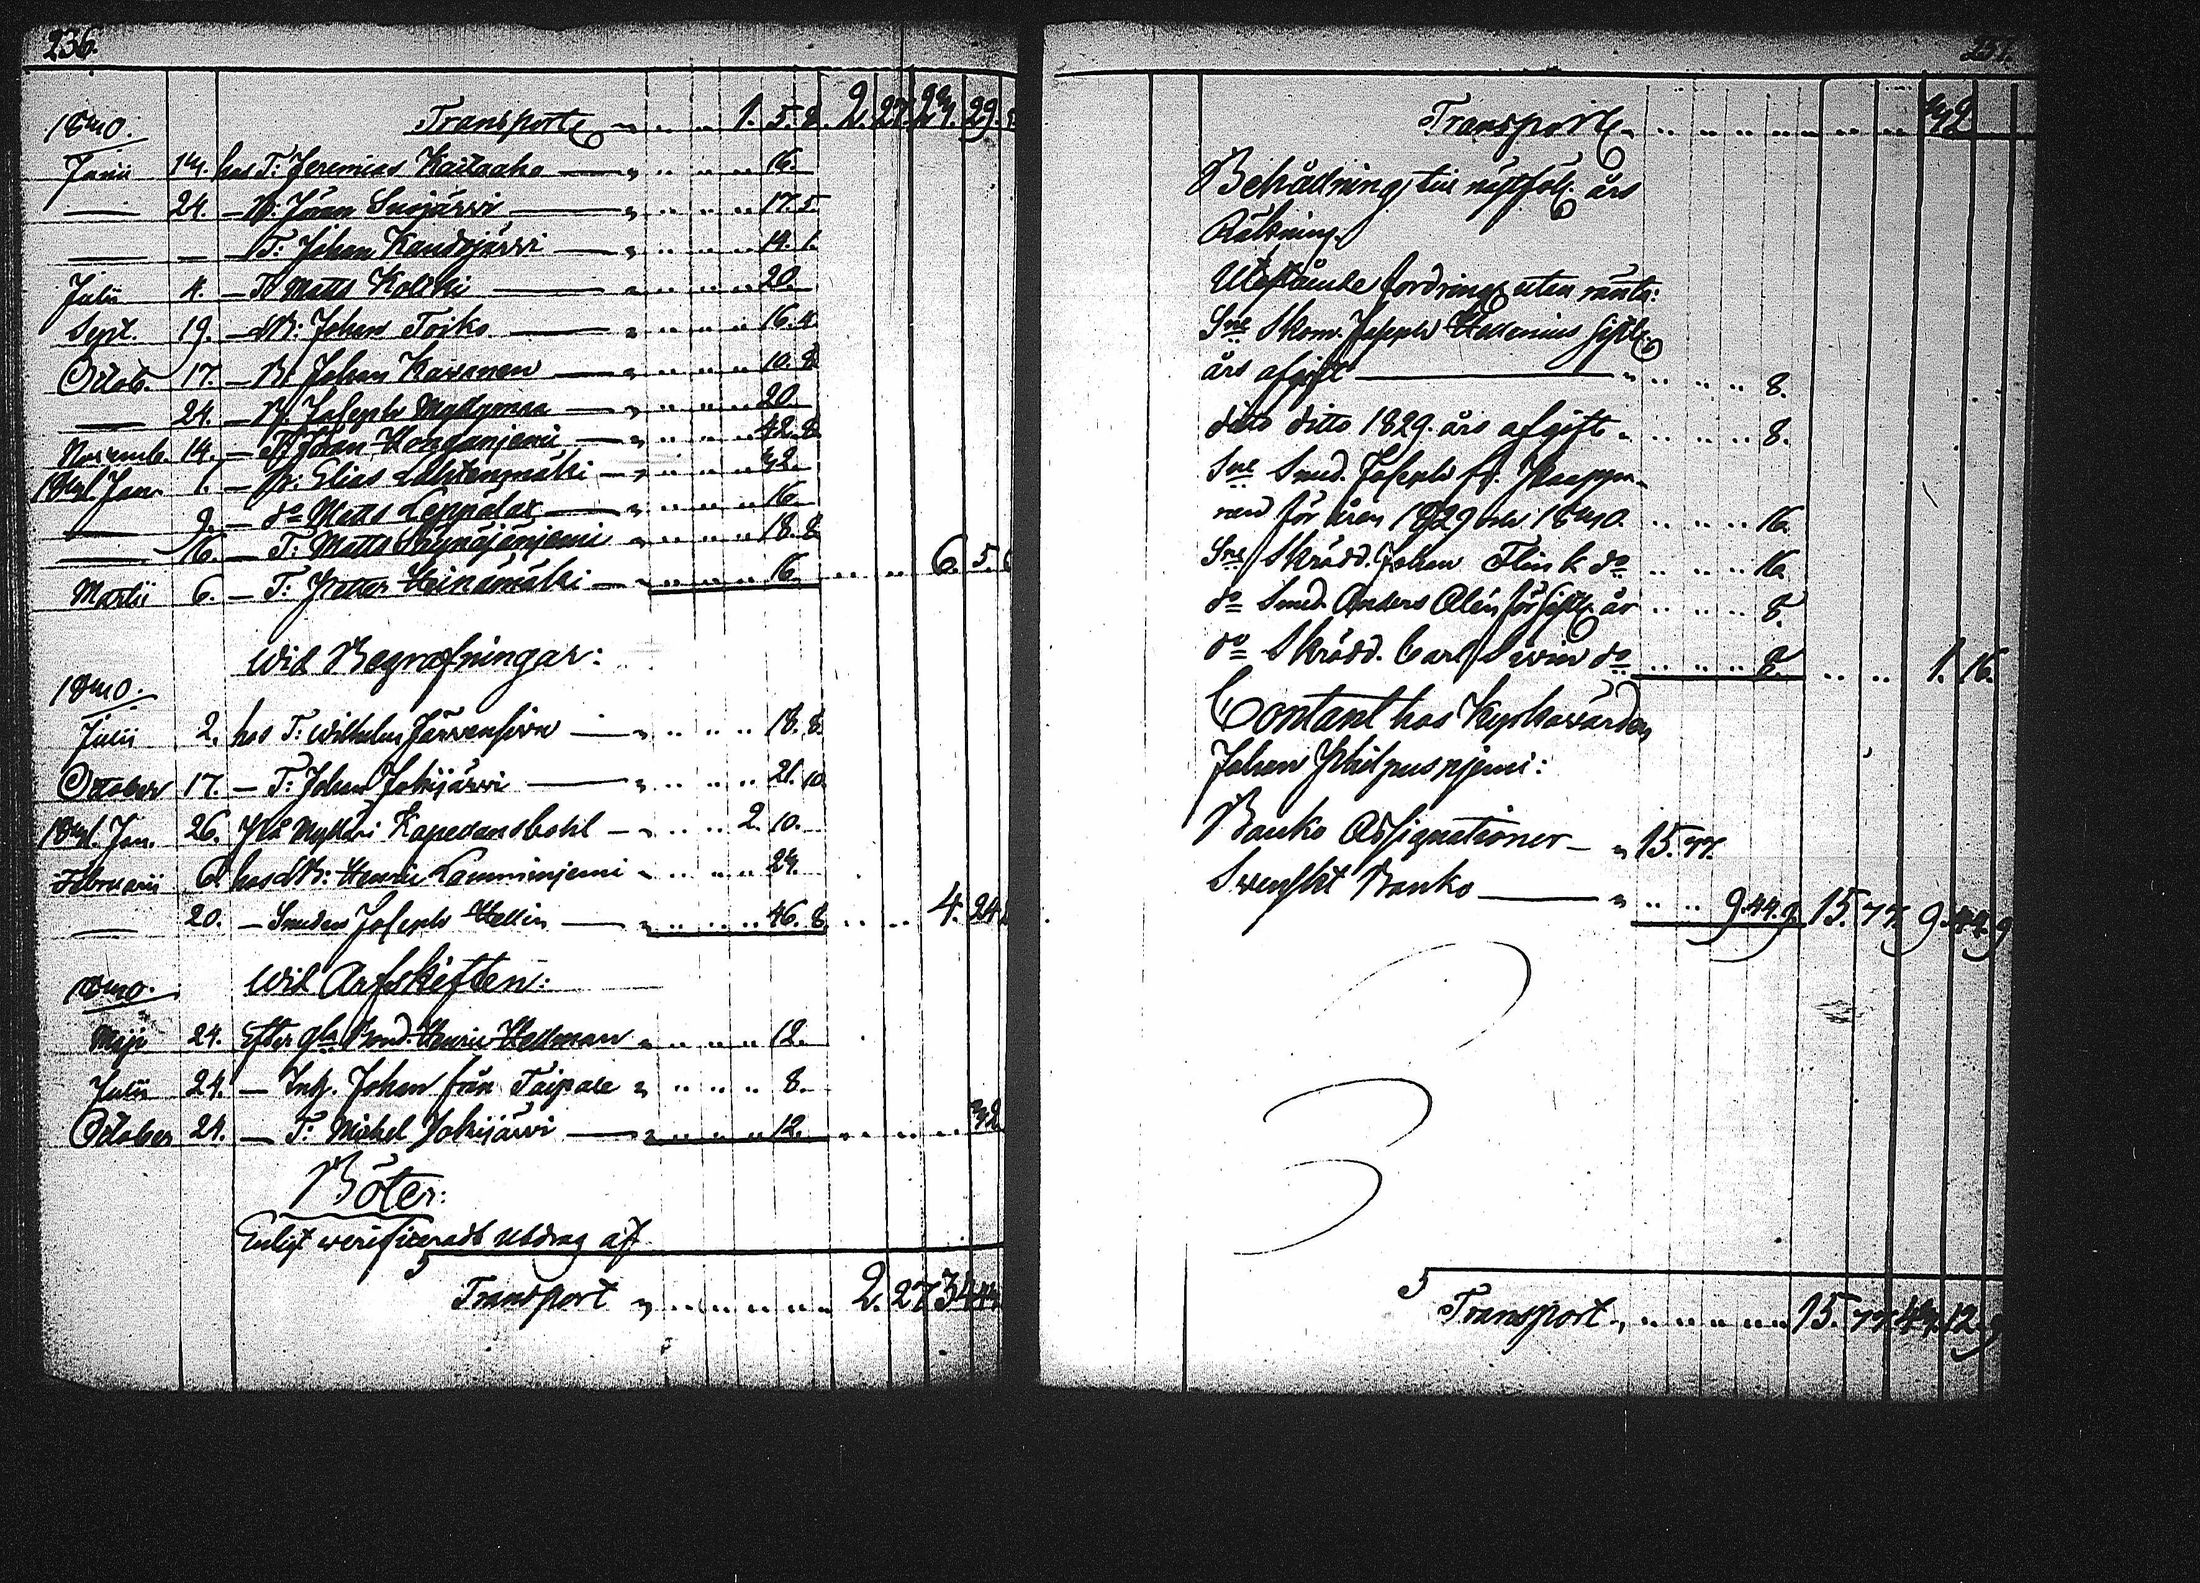 236.
Transport 1. 5. 8. 2. 27. 24. 29.
1830.
Junii 14. hos T: Jeremias Kailaako 16.
24. B: Johan Suojärvi 17. 5.
T: Johan Kandojärvi 14. 1.
Julii 4. Matts Kolkki 20.
Sept. 19. B: Johan Toiko 16. 4.
Octob. 17. B: Johan Kaxonen 10. 8.
24. B. Joseph Myllymaa 20.
Novemb. 14. Johan Honganjemi 42. 8.
1831 Jan. 1. B: Elias Lähtenmäki 32.
9. do Matts Leppälax 16.
16. T: Matts 18. 8.
Martii 6. T: Petter Heinämäki 16. 6. 5.
wid Begrafningar:
1830.
Julii 2. hos T: Wilhelm Järvensivu 18. 8.
October 17. T: Johan Jokijärvi 21. 10.
1831. Jan. 26. På Mylläri Kapellansbohl 2. 10.
Februarii 6. hos B: Henric Lamminjemi 24.
20. Smeden Joseph Hellin 46. 8. 4. 24
wid Arfskiften:
1830.
Maji 24. Efter Bond. Henric Hellman 12.
Julii 24. Inh. Johan från Taipale 8.
October 24. T: Michel Jokijärvi 12. 32.
Böter:
Enligt verificeradt utdrag af
Transport 2. 27 34 44
237.
Transport 32
Behållning till nästföl. års
Räkning.
Utestående fordring utan ränta:
Sne Skom. Joseph Hellenius sistl.
års afgift 8.
ditto ditto 1829. års afgift 8.
Sne Smed. Joseph
för åren 1829 och 1830. 16.
Sne Skrädd. Johan Flink do 16.
do Smed. Anders Alén för sistl. år 8.
do Skrädd. Carl do 8. 1. 16.
Contant hos Kyrkovärden
Johan Philpusnjemi:
Banko Assignationer 15. 77.
Svenskt Banko 9. 44. 9. 15. 77. 9. 44. 9
Transport 15. 77. 43. 12. 9